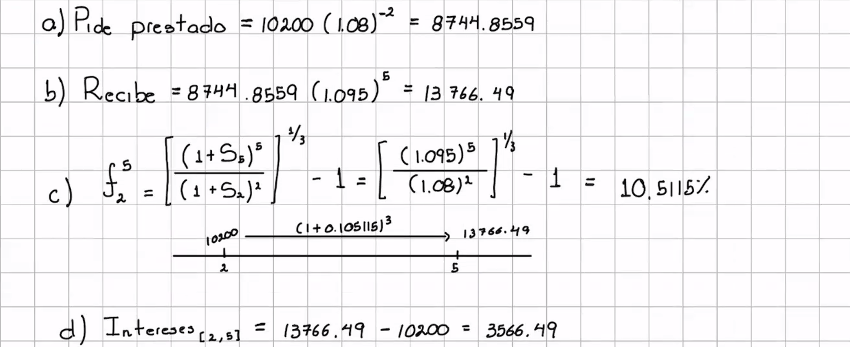 a) Pide prestado = 10200 (1.08)^-2 = 8744.8559
b) Recibe = 8744.8559 (1.095)^5 = 13 766.49
c) f_2^5 = [(1+S_5)^5 / (1+S_2)^2]^1/3 - 1 = [(1.095)^5 / (1.08)^2]^1/3 - 1 = 10.5115%
10200 (1+0.105115)^3 13766.49
2 5
d) Intereses [2,5] = 13766.49 - 10200 = 3566.49